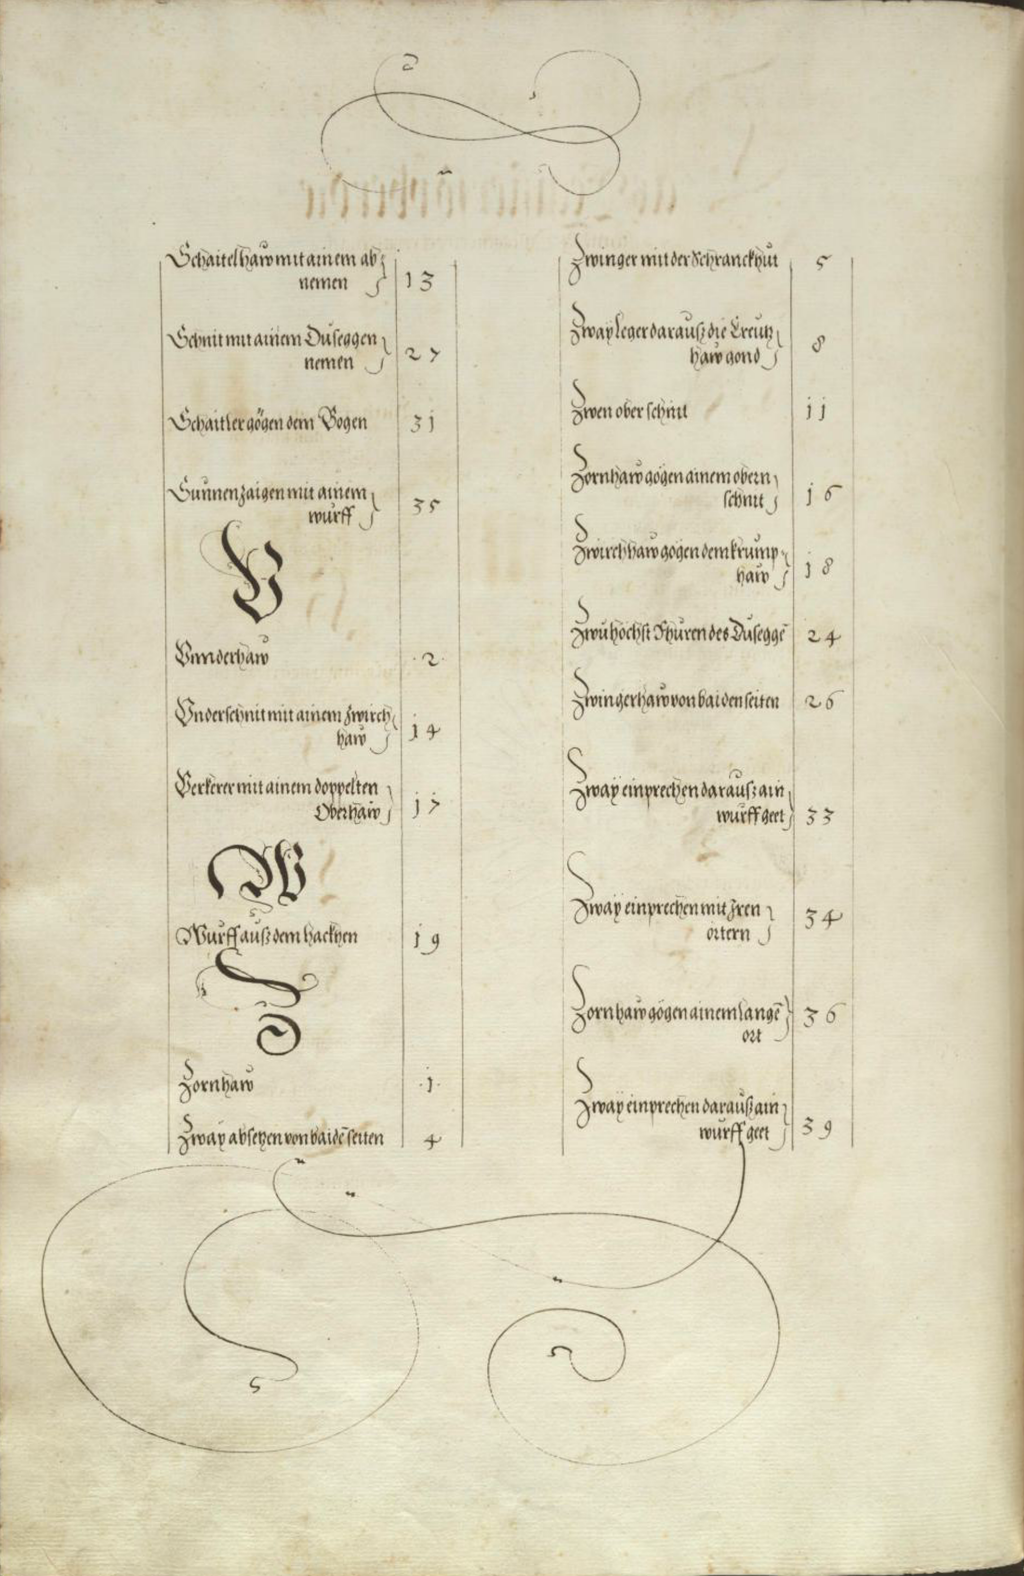 Schaitelhaw mit ainem ab
nemen 13
Schnit mit ainem Duseggen
nemen 27
Schaitler gögen dem Bogen 31
Sunnen zaigen mit ainem
wurff 35
V
Vnnderhaw 2
Vnderschnit mit ainem zwirch
haw 14
Verkerer mit ainem doppelten
Oberhaw 17
W
Wurff auß dem hackhen 19
Z
Zornhaw 1
Zway absetzen von baidē seiten 4
Zwinger mit der Schranckhut 5
Zway leger darauß die Creutz
haw gond 8
Zwen ober schnit 11
Zornhaw gögen ainem obern
schnit 16
Zwirchhaw gögen dem krump
haw 18
Zwu höchst Huren des Duseggē 24
Zwingerhaw von baiden seiten 26
Zway einprechen darauß ain
wurff geet 33
Zway einprechen mit Iren
örtern 34
Zornhaw gögen ainem langē
ort 36
Zway einprechen darauß ain
wurff geet 39